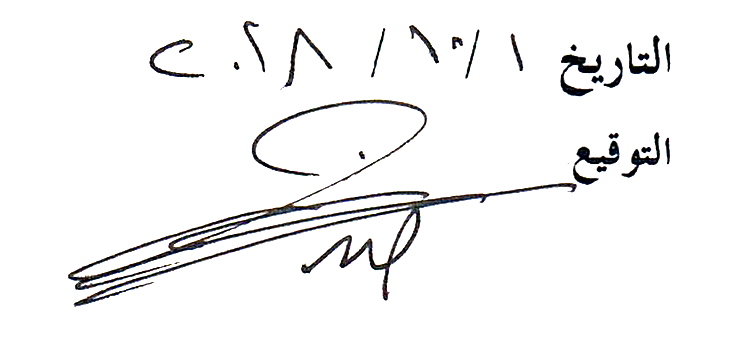 التاريخ ١ / ١٠ / ٢٠٢٨
التوقيع